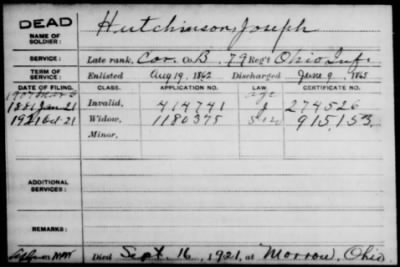 DEAD Hutchinson, Joseph
NAME OF SOLDIER:
SERVICE: Late rank, Cor. Co. B, 79 Reg't Ohio Inf.
TERM OF SERVICE: Enlisted Aug 19, 1862 Discharged June 9, 1865
DATE OF FILING. CLASS. APPLICATION NO. LAW. CERTIFICATE NO.
1907 Mar 6 age
1881 Jan 21 Invalid, 414741 274526
1921 Oct 21 Widow, 1180375 915,153
Minor,
ADDITIONAL SERVICES:
REMARKS:
Died Sept. 16, 1921, at Morrow, Ohio